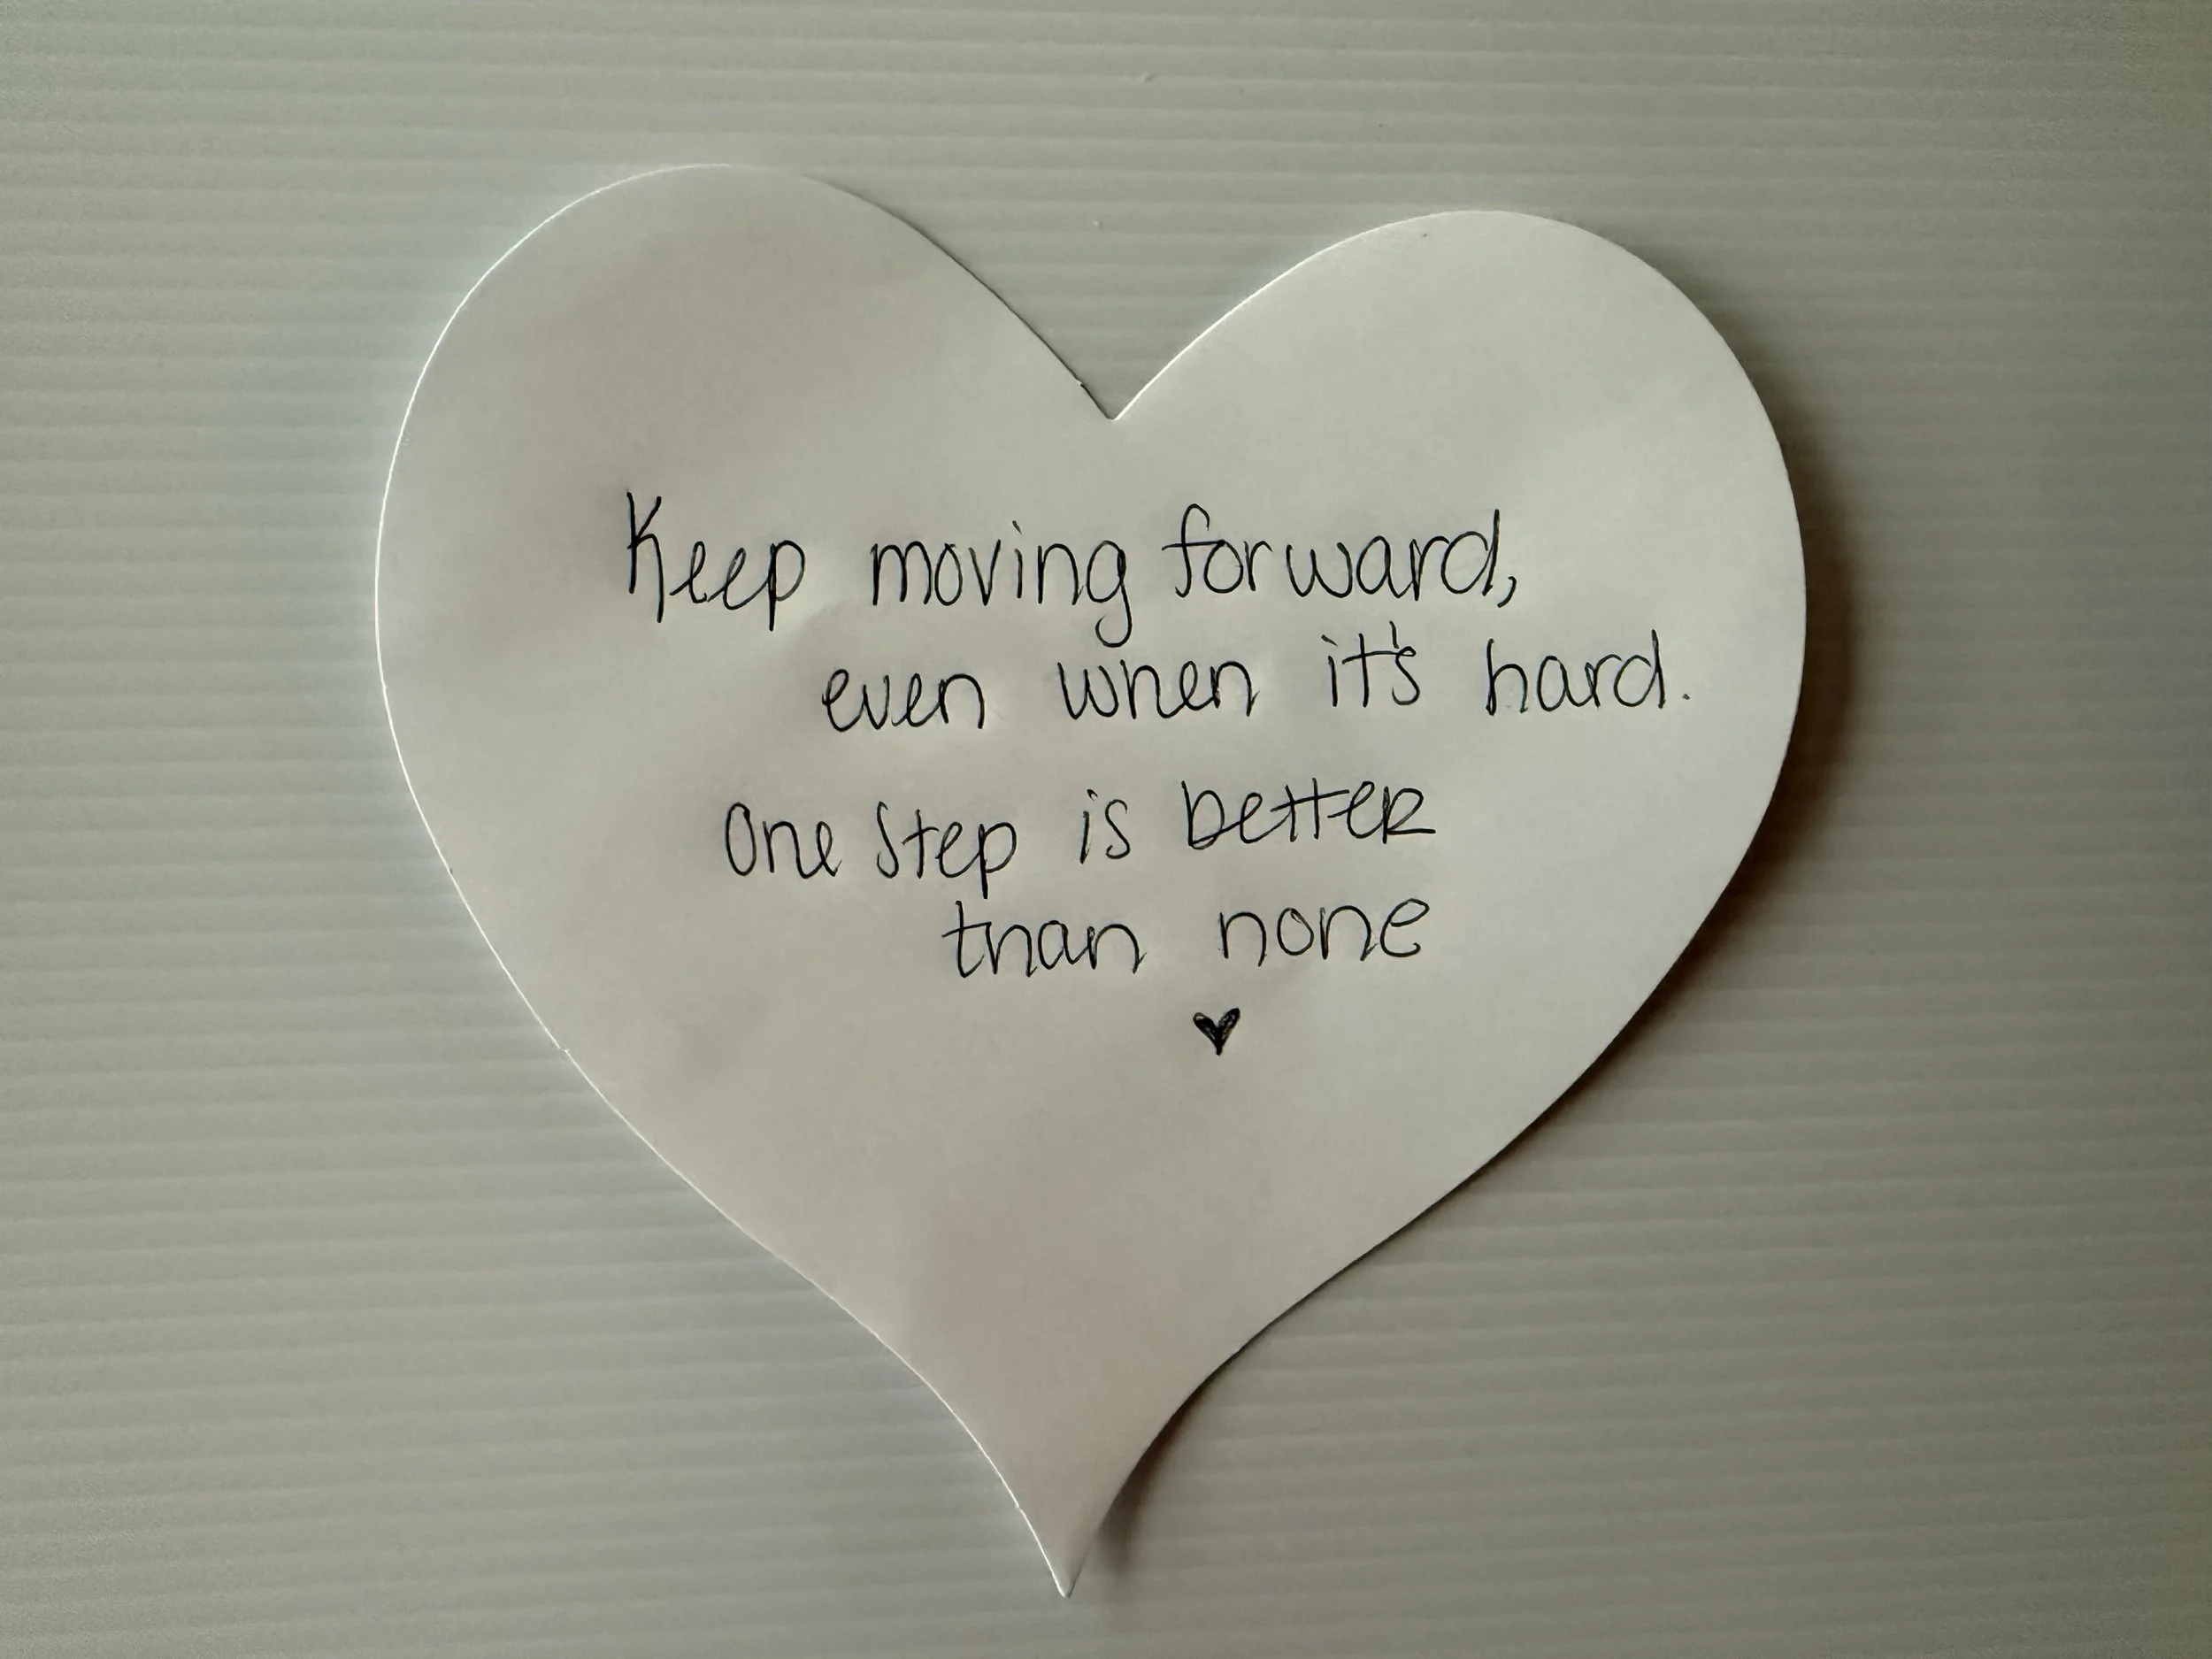 Keep moving forward,
even when it's hard.
One step is better
than none
♥